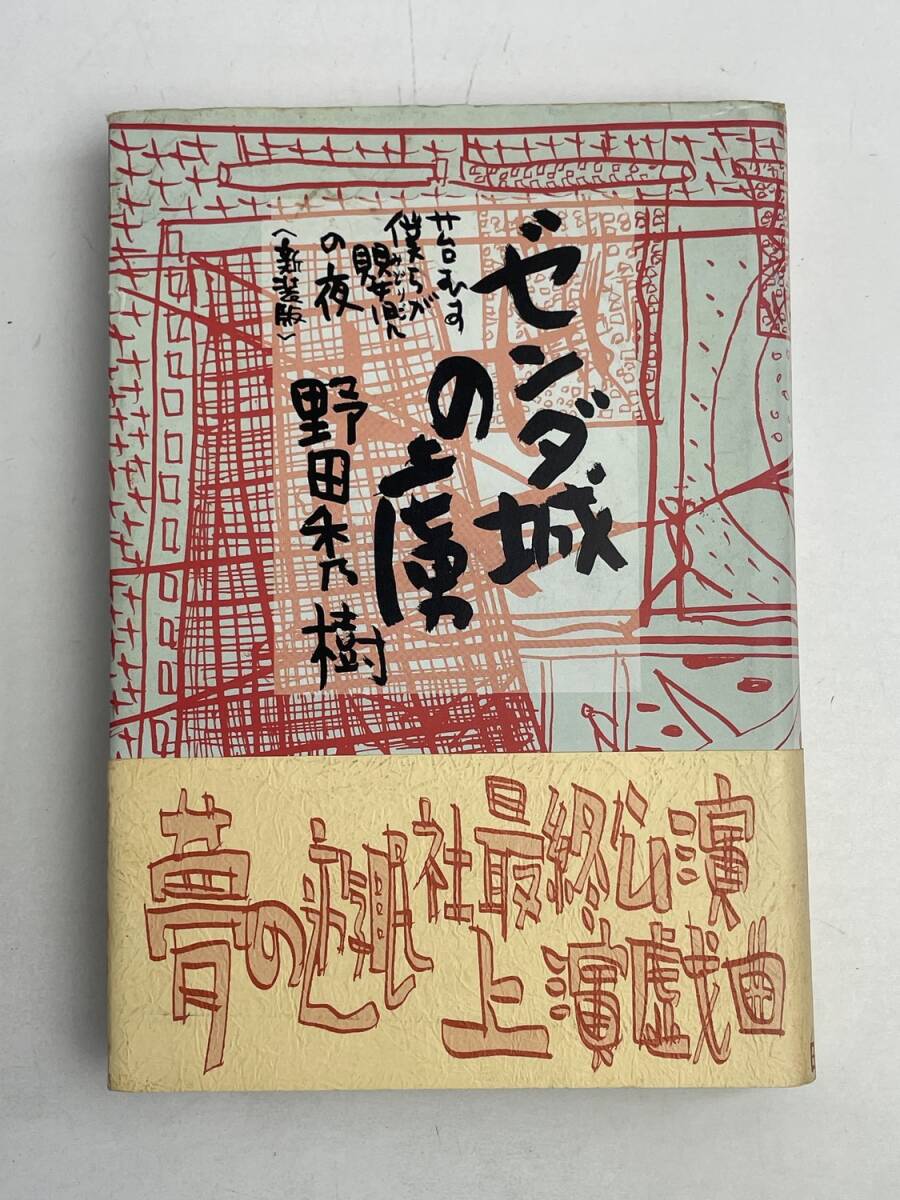 ゼンダ城
の虜
苔むす
僕らが
みどりご
嬰児
の夜
〈新装版〉
野田秀樹
夢の遊眠社最終公演
上演戯曲